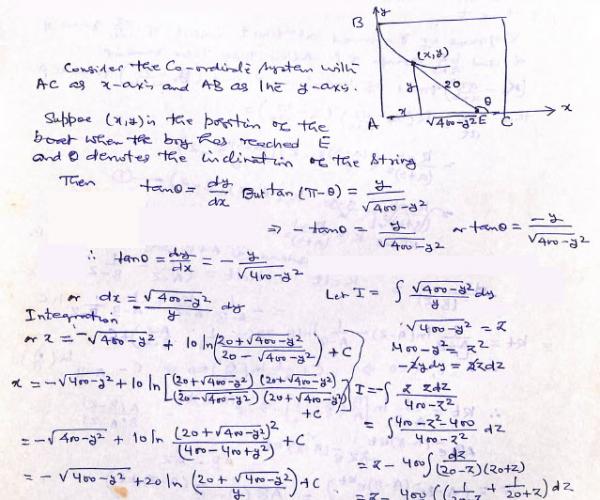 y
B
(x,y)
y
20
θ
A
x
√400-y²
E
C
x
Consider the Co-ordinate system with
AC as x-axis and AB as the y-axis.
Suppose (x,y) is the position of the
boat when the boy has reached E
and θ denotes the inclination of the string
Then tanθ = dy/dx But tan(π-θ) = y/√400-y²
⇒ -tanθ = y/√400-y² or tanθ = -y/√400-y²
∴ tanθ = dy/dx = -y/√400-y²
or dx = -√400-y²/y dy
Integration
or x = -√400-y² + 10 ln(20+√400-y²/20-√400-y²) + C
x = -√400-y² + 10 ln[(20+√400-y²)(20+√400-y²)/(20-√400-y²)(20+√400-y²)] + C
= -√400-y² + 10 ln (20+√400-y²)²/(400-400+y²) + C
= -√400-y² + 20 ln(20+√400-y²/y) + C
Let I = ∫ √400-y²/y dy
√400-y² = z
400-y² = z²
-2ydy = 2zdz
I = -∫ z zdz/400-z²
= ∫ 400-z²-400/400-z² dz
= z - 400∫ dz/(20-z)(20+z)